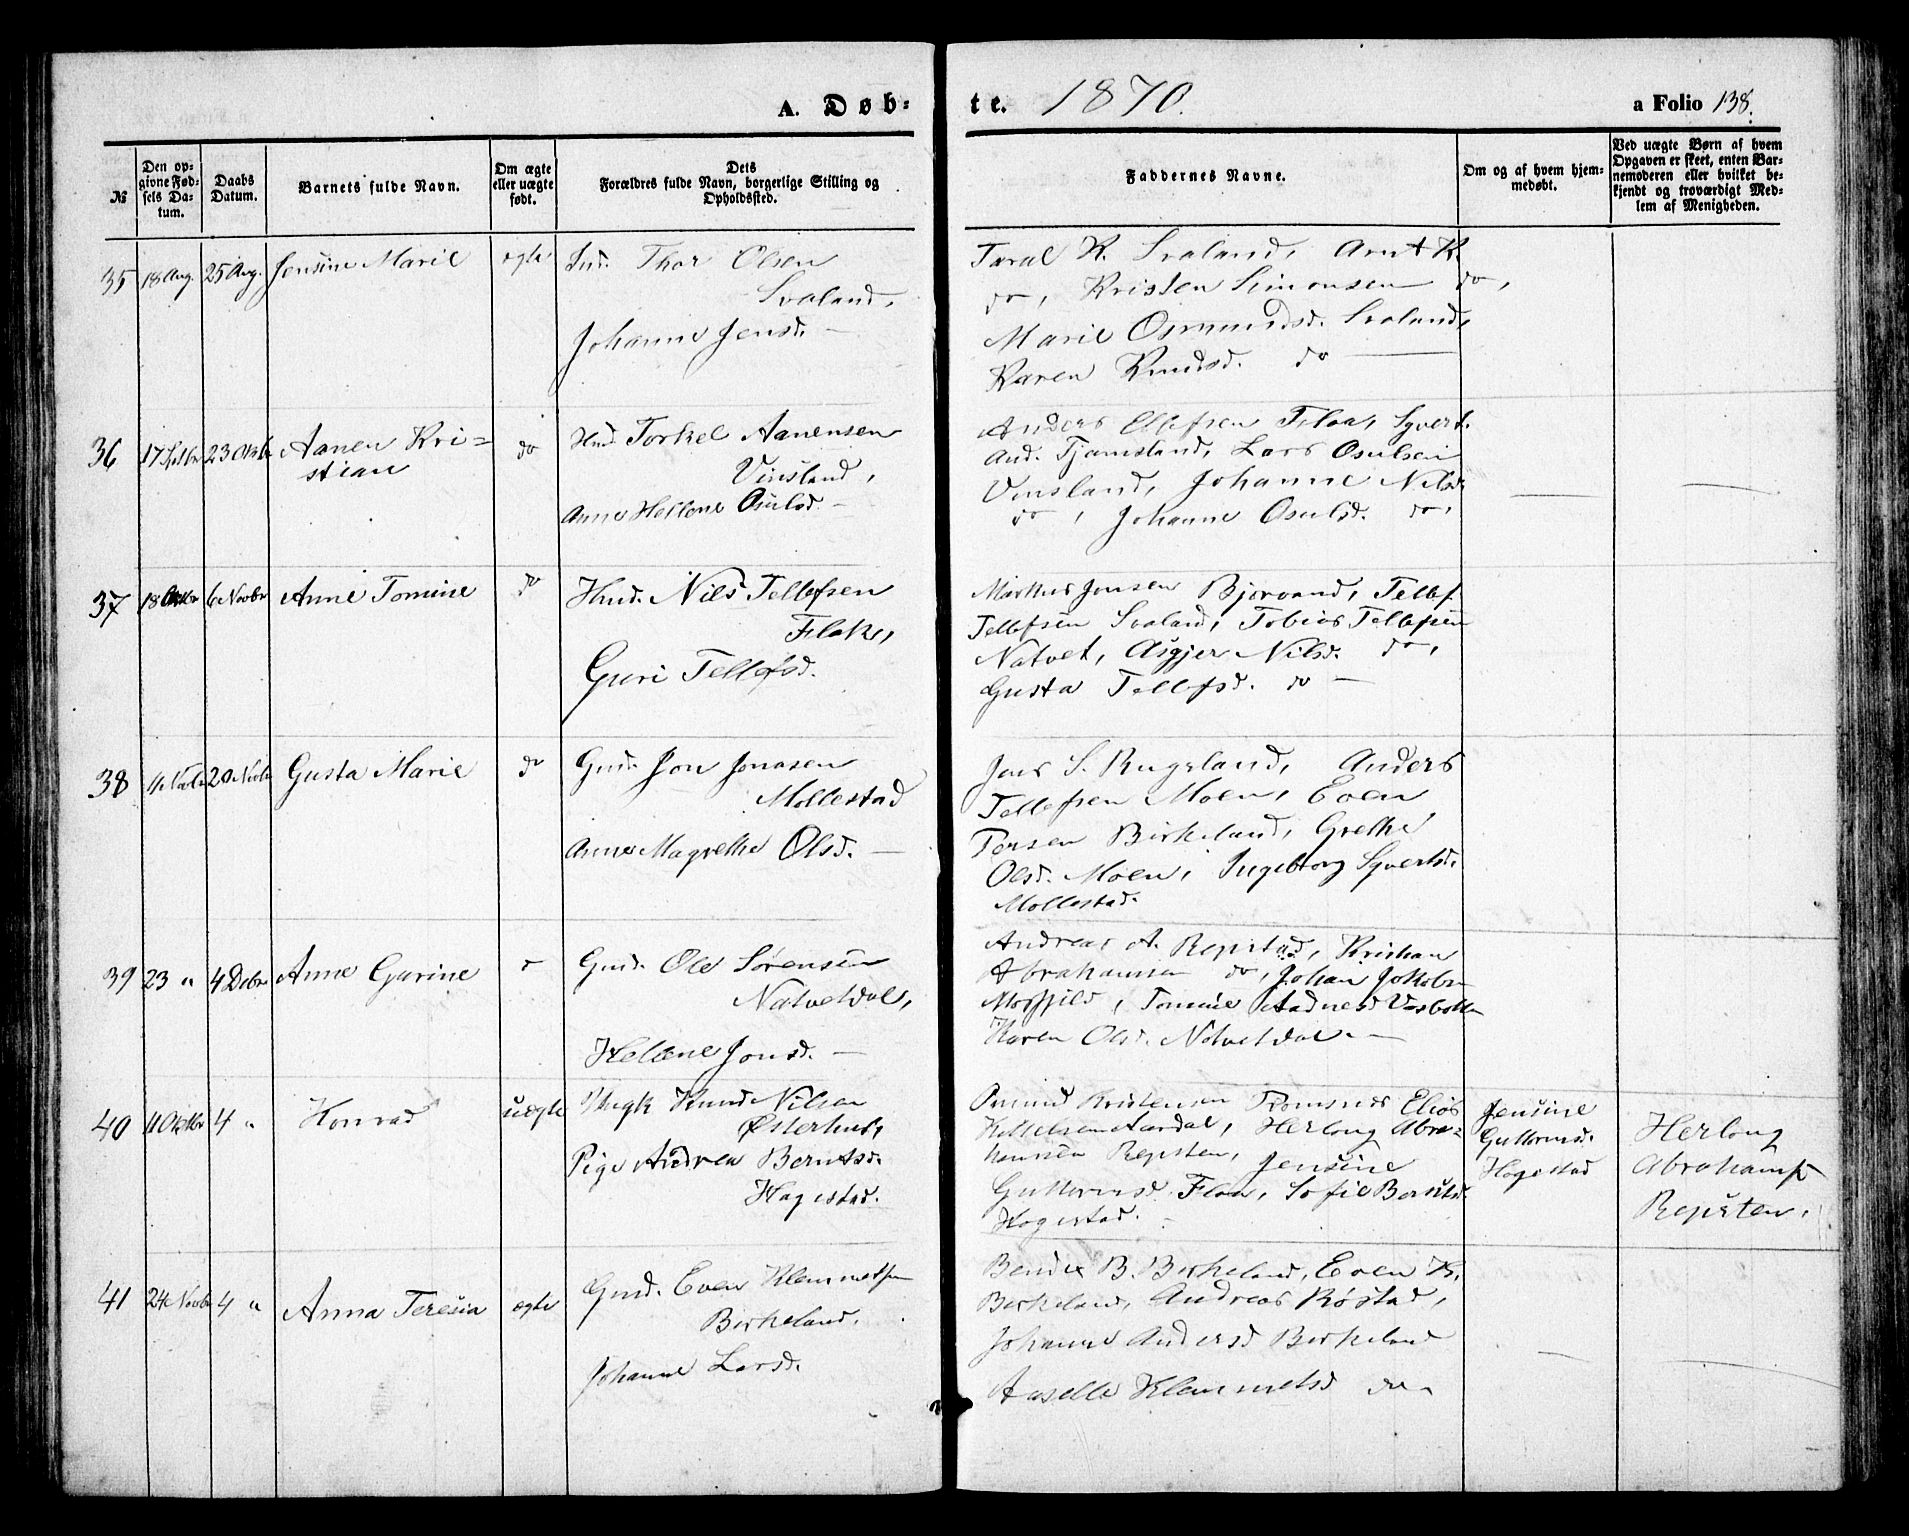 A. Døb-
te. 1870.
a Folio 138.
№
Den op-
givne Fød-
sels Da-
tum.
Daabs
Datum.
Barnets fulde Navn.
Om ægte
eller uægte
født.
Dets
Forældres fulde Navn, borgerlige Stilling og
Opholdssted.
Faddernes Navne.
Om og af hvem hjem-
medøbt.
Ved uægte Børn af hvem
Opgaven er skeet, enten Bar-
nemoderen eller hvilket be-
kjendt og troværdigt Med-
lem af Menigheden.
35 18 Aug. 25 Aug. Jensine Marie ægte Ind. Thor Olsen
Svaland,
Johanne Jensd. —
Taral K. Svaland, Arnt K.
do, Kristen Simonsen do,
Marie Osmundsd. Svaland,
Karen Knudsd. do —
36 17 Septbr 23 Oktbr Aanen Kri=
stian
do Hmd. Torkel Aanensen
Vinsland,
Anne Hellene Osulsd. —
Anders Ellefsen Flaa, Syvert
And. Tjamsland, Lars Osulsen
Vinsland, Johanne Nilsd.
do, Johanne Osulsd. do,
37 18 Oktbr 6 Novbr Anne Tomine do Hmd. Nils Tellefsen
Flake,
Guri Tellefsd.
Markus Jensen Bjorvand, Tellef
Tellefsen Svaland, Tobias Tellefsen
Natvet, Asgjer Nilsd. do,
Gusta Tellefsd. do —
38 11 Novbr 20 Novbr Gusta Marie do Gmd. Jon Jonasen
Mollestad
Anne Magrethe Olsd. —
Jens S. Rugsland, Anders
Tellefsen Moen, Even
Persen Birkeland, Grethe
Olsd. Moen, Ingeborg Syvertsd.
Mollestad.
39 23 " 4 Debr Anne Gurine Gmd. Ole Sørensen
Natvetdal,
Helene Jonsd. —
Andreas A. Repstad, Kristian
Abrahamsen do, Johan Jokobsn
Mosfjeld, Tomine Aadnesd
Karen Olsd. Natvetdal. —
40 11 Oktbr 4 " Konrad uægte Ungk Knud Nilsen
Østerhus,
Pige Andrea Berntsd.
Hagestad.
Kristensen Tromsnes Elias
Kittelsen Aardal, Herlong Abra=
hamsen Repsten, Jensine
Guttormsd. Flaa, Sofie Berntsd.
Hagestad.
Jensine
Guttormsd.
Hagestad
Herlong
Abrahams
Repsten.
41 24 Novbr 4 " Anna Teresia ægte Gmd. Even Klemmetsen
Birkeland.
Johanne Larsd.
Bendix B. Birkeland, Even K.
Birkeland, Andreas Røstad,
Johanne Andersd Birkeland
Aaselle Klemmetsd do.